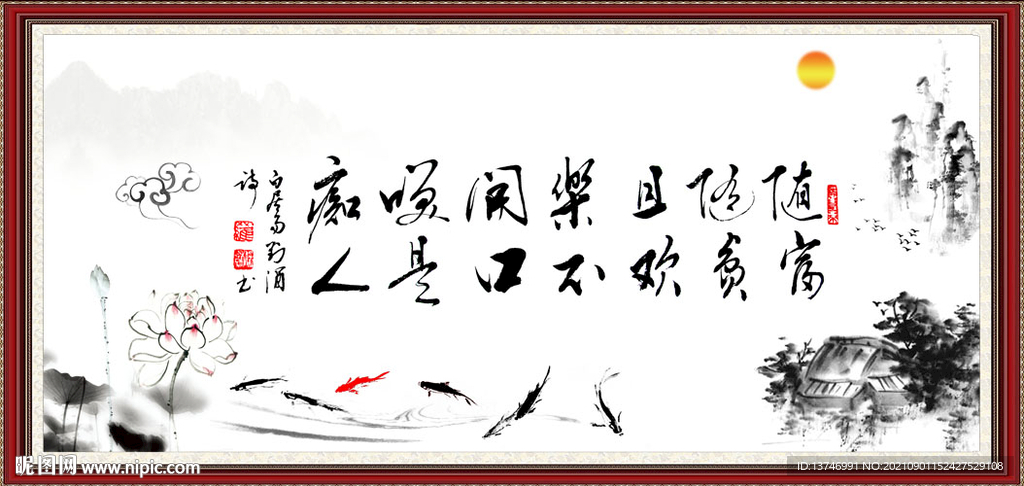 随富
随貧
且欢
樂不
開口
咲是
痴人
白居易对酒
诗
书
昵图网 www.nipic.com
ID:13746991 NO:20210901152427529108